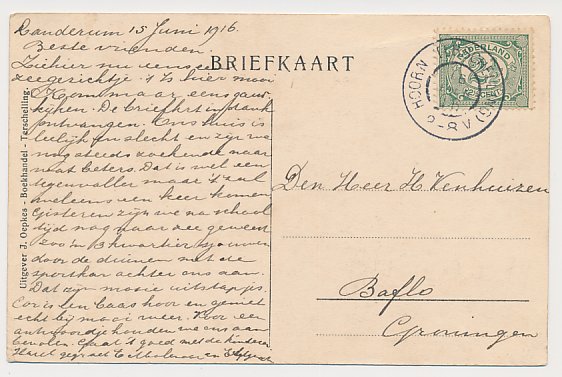 Landerum 15 Juni 1916.
Beste vrienden.
Ziehier nu eens een
zeegezichtje. 't Is hier mooi
Kom maar eens gauw
kijken. De brief hrt in dank
ontvangen. Ons huis is
leelijk en slecht en zijn we
nog steeds zoekende naar
wat beters. Dat is wel een
tegenvaller maar 't zal
wel eens een keer komen
Gisteren zijn we na school
tijd nog naar zee geweest
zoo in 3 kwartier sjouwen
door de duinen met de
sportkar achter ons aan.
Dat zijn mooie uitstapjes.
Cor is len baas hoor en geniet
echt bij mooi weer. Voor een
antwoordje houden we ons aan
bevolen. Gaat 't goed met de kinderen
Hartel gegroet
BRIEFKAART
Uitgever J. Oepkes - Boekhandel - Terschelling.
NEDERLAND
HOORN
8-8 V
Den Heer H. Venhuizen
Baflo
Groningen